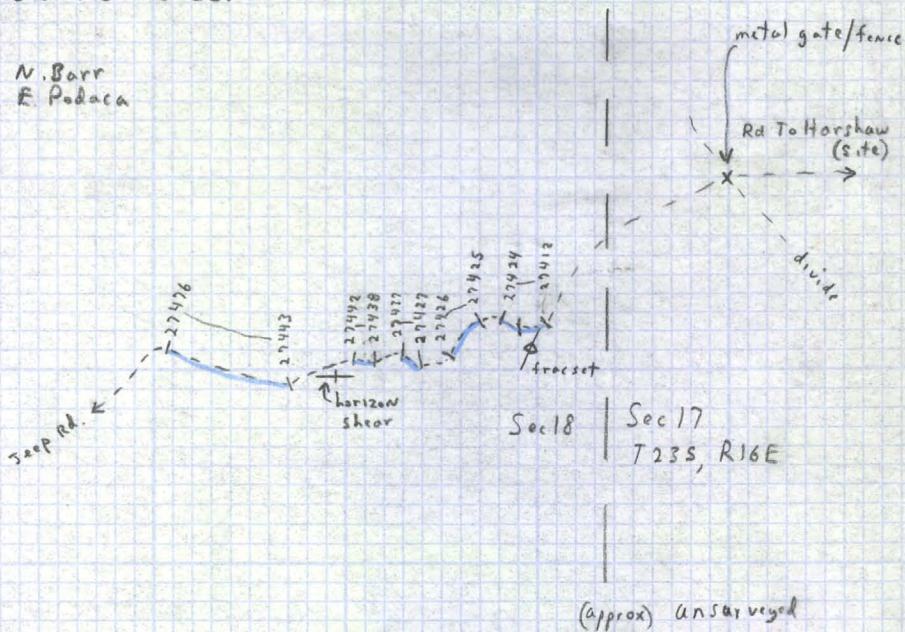 N. Barr
E. Podaca
metal gate/fence
Rd To Harshaw
(site)
divide
27476
27443
27442
27438
27427
27426
27425
27424
27412
fracset
horizon
shear
Jeep Rd.
Sec 18
Sec 17
T23S, R16E
(approx) unsurveyed